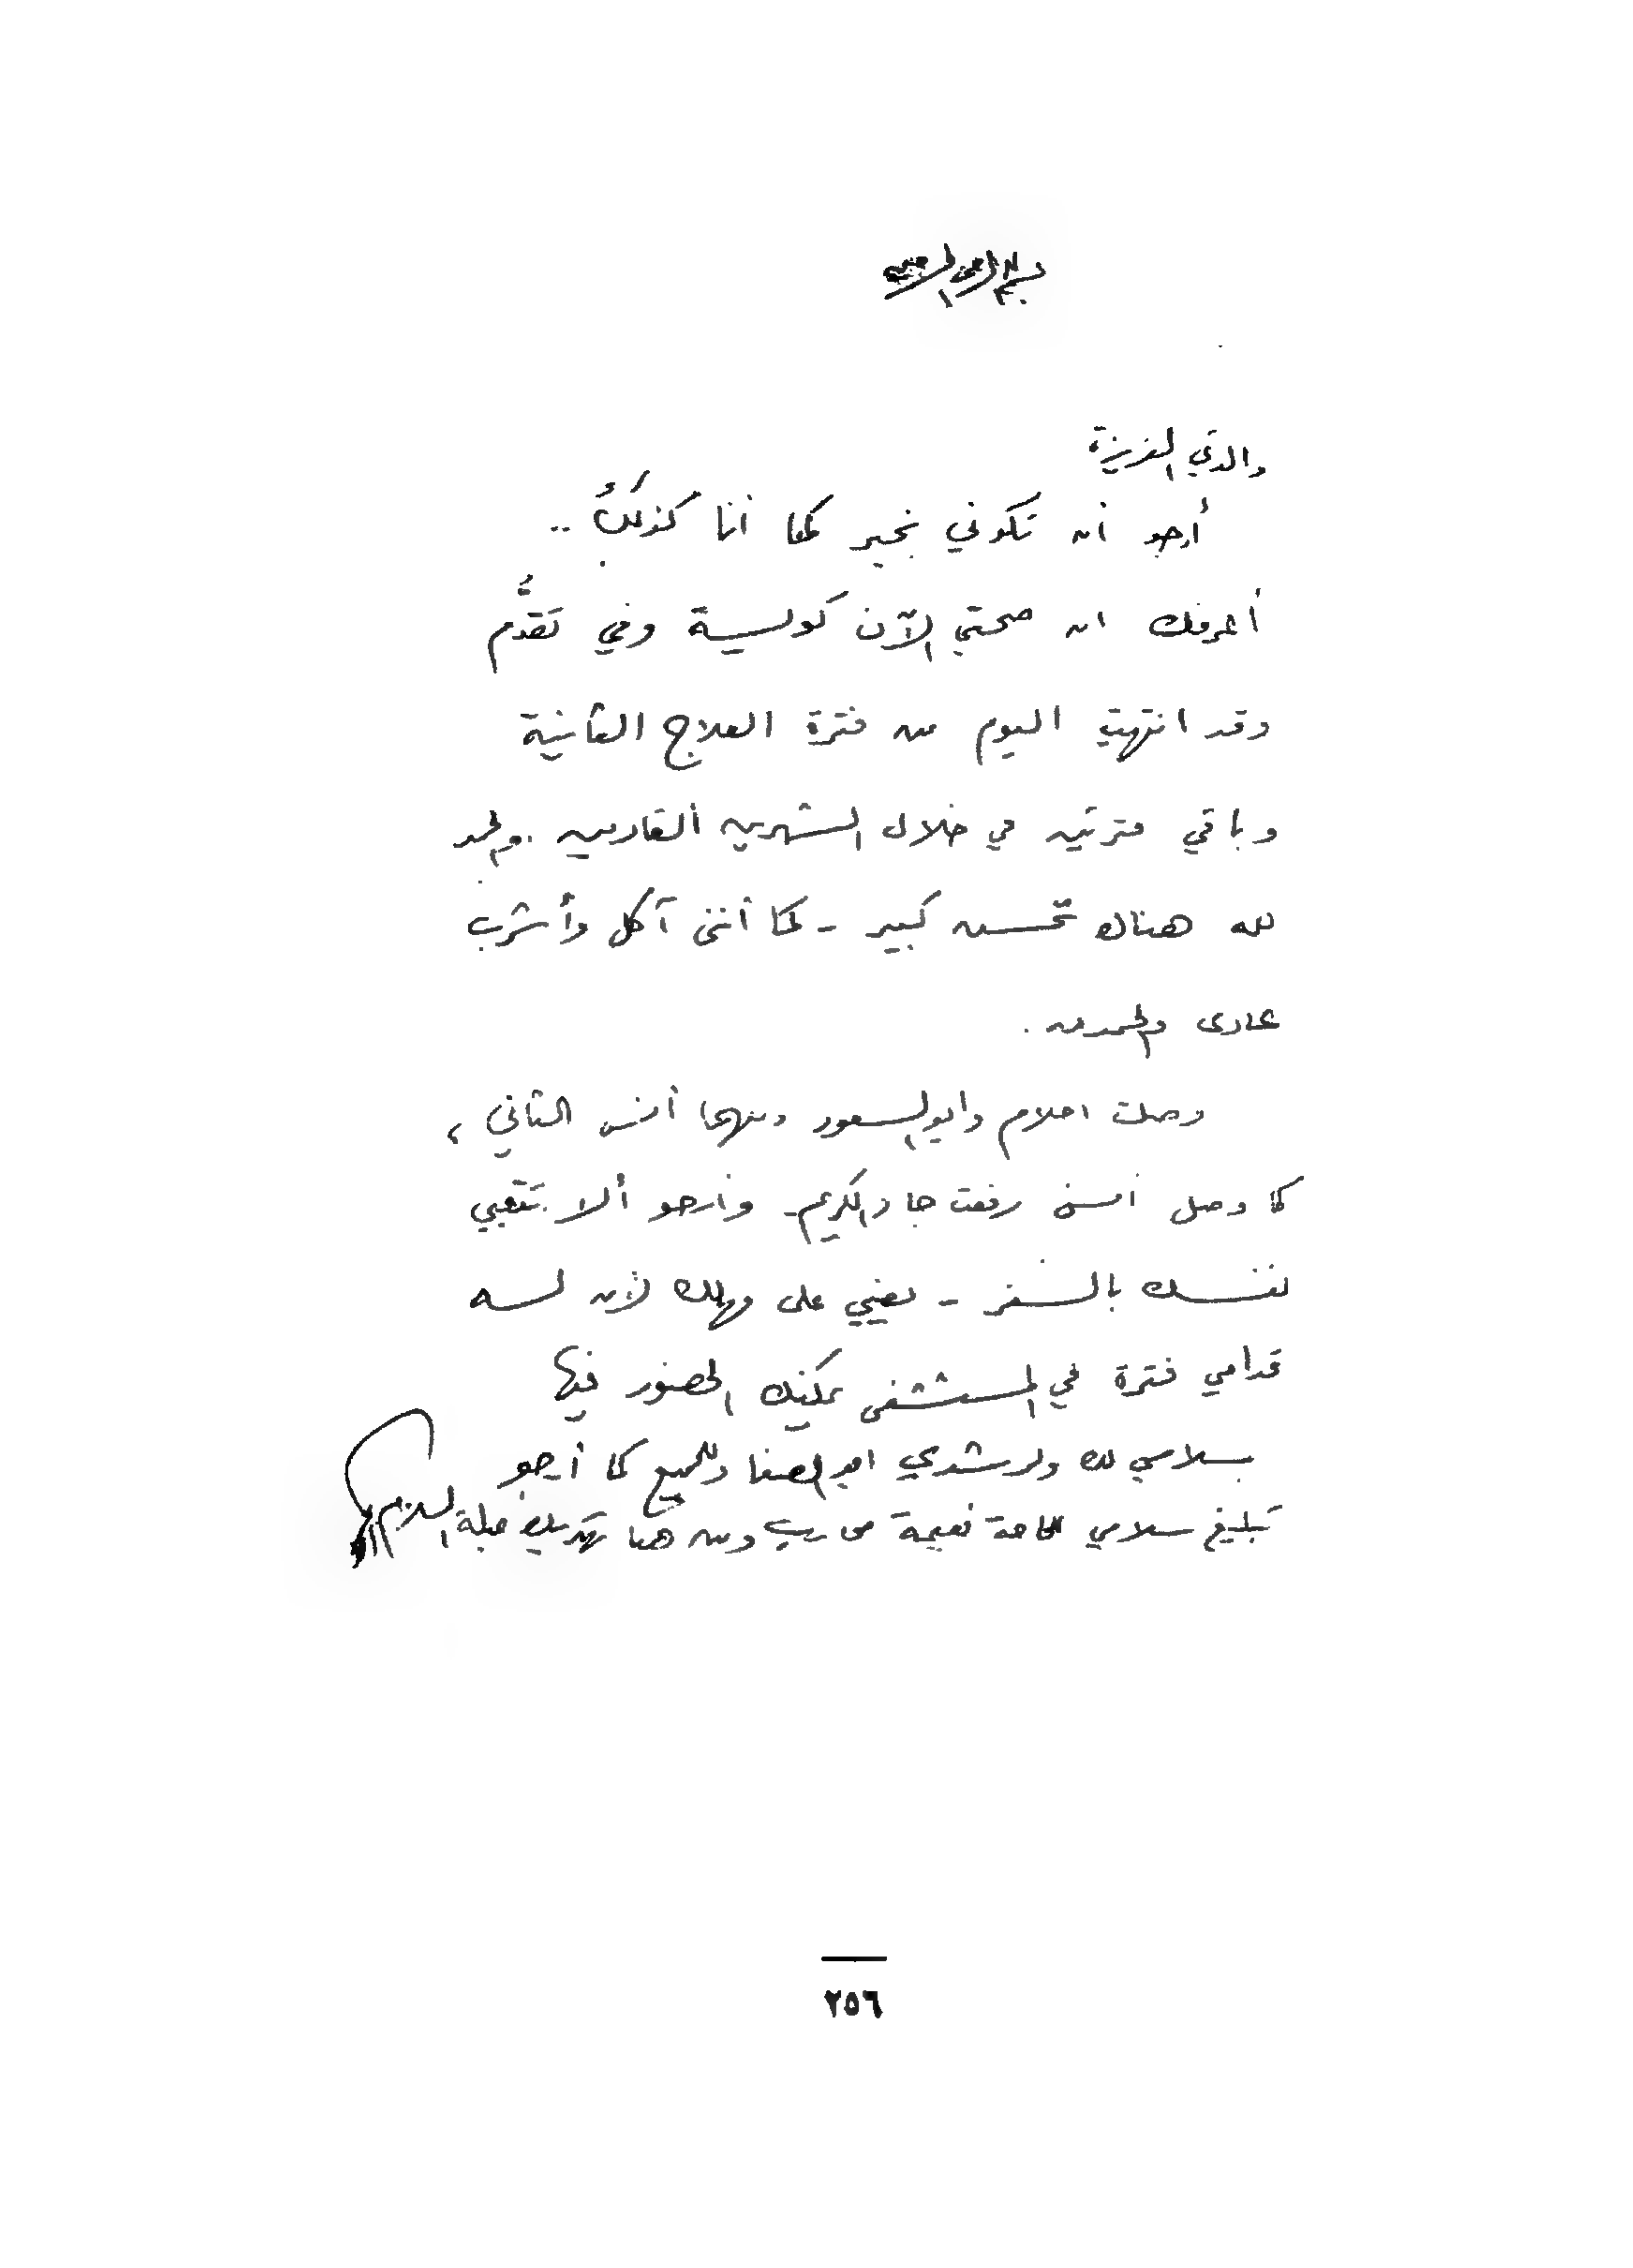 بسم الله الرحمن الرحيم
والدتي العزيزة
أرجو أن تكوني بخير كما أنا كذلك ..
أعرفك ان صحتي الآن كويسة وفي تقدُّم
وقد انتهيت اليوم من فترة العلاج الثانية
وباقي فترتين في خلال الشهرين القادمين . والحمد
لله هناك تحسن كبير - كما أننى آكل وأشرب
عادى والحمد لله .
وصلت احلام وابو السعود وابنهما أمس الثاني ،
كما وصل أمس رفعت جاد الكريم - وأرجو ألا تتعبي
نفسك بالسفر - يعني على مهلك لأن لسه
قدامي فترة في المستشفى يمكنك الحضور فيها
سلامي لك ولرشدي ابو الصفا وللجميع كما أرجو
تبليغ سلامي للحاجة نعيمة ومن هنا تهديك عبلة السلام
٢٥٦